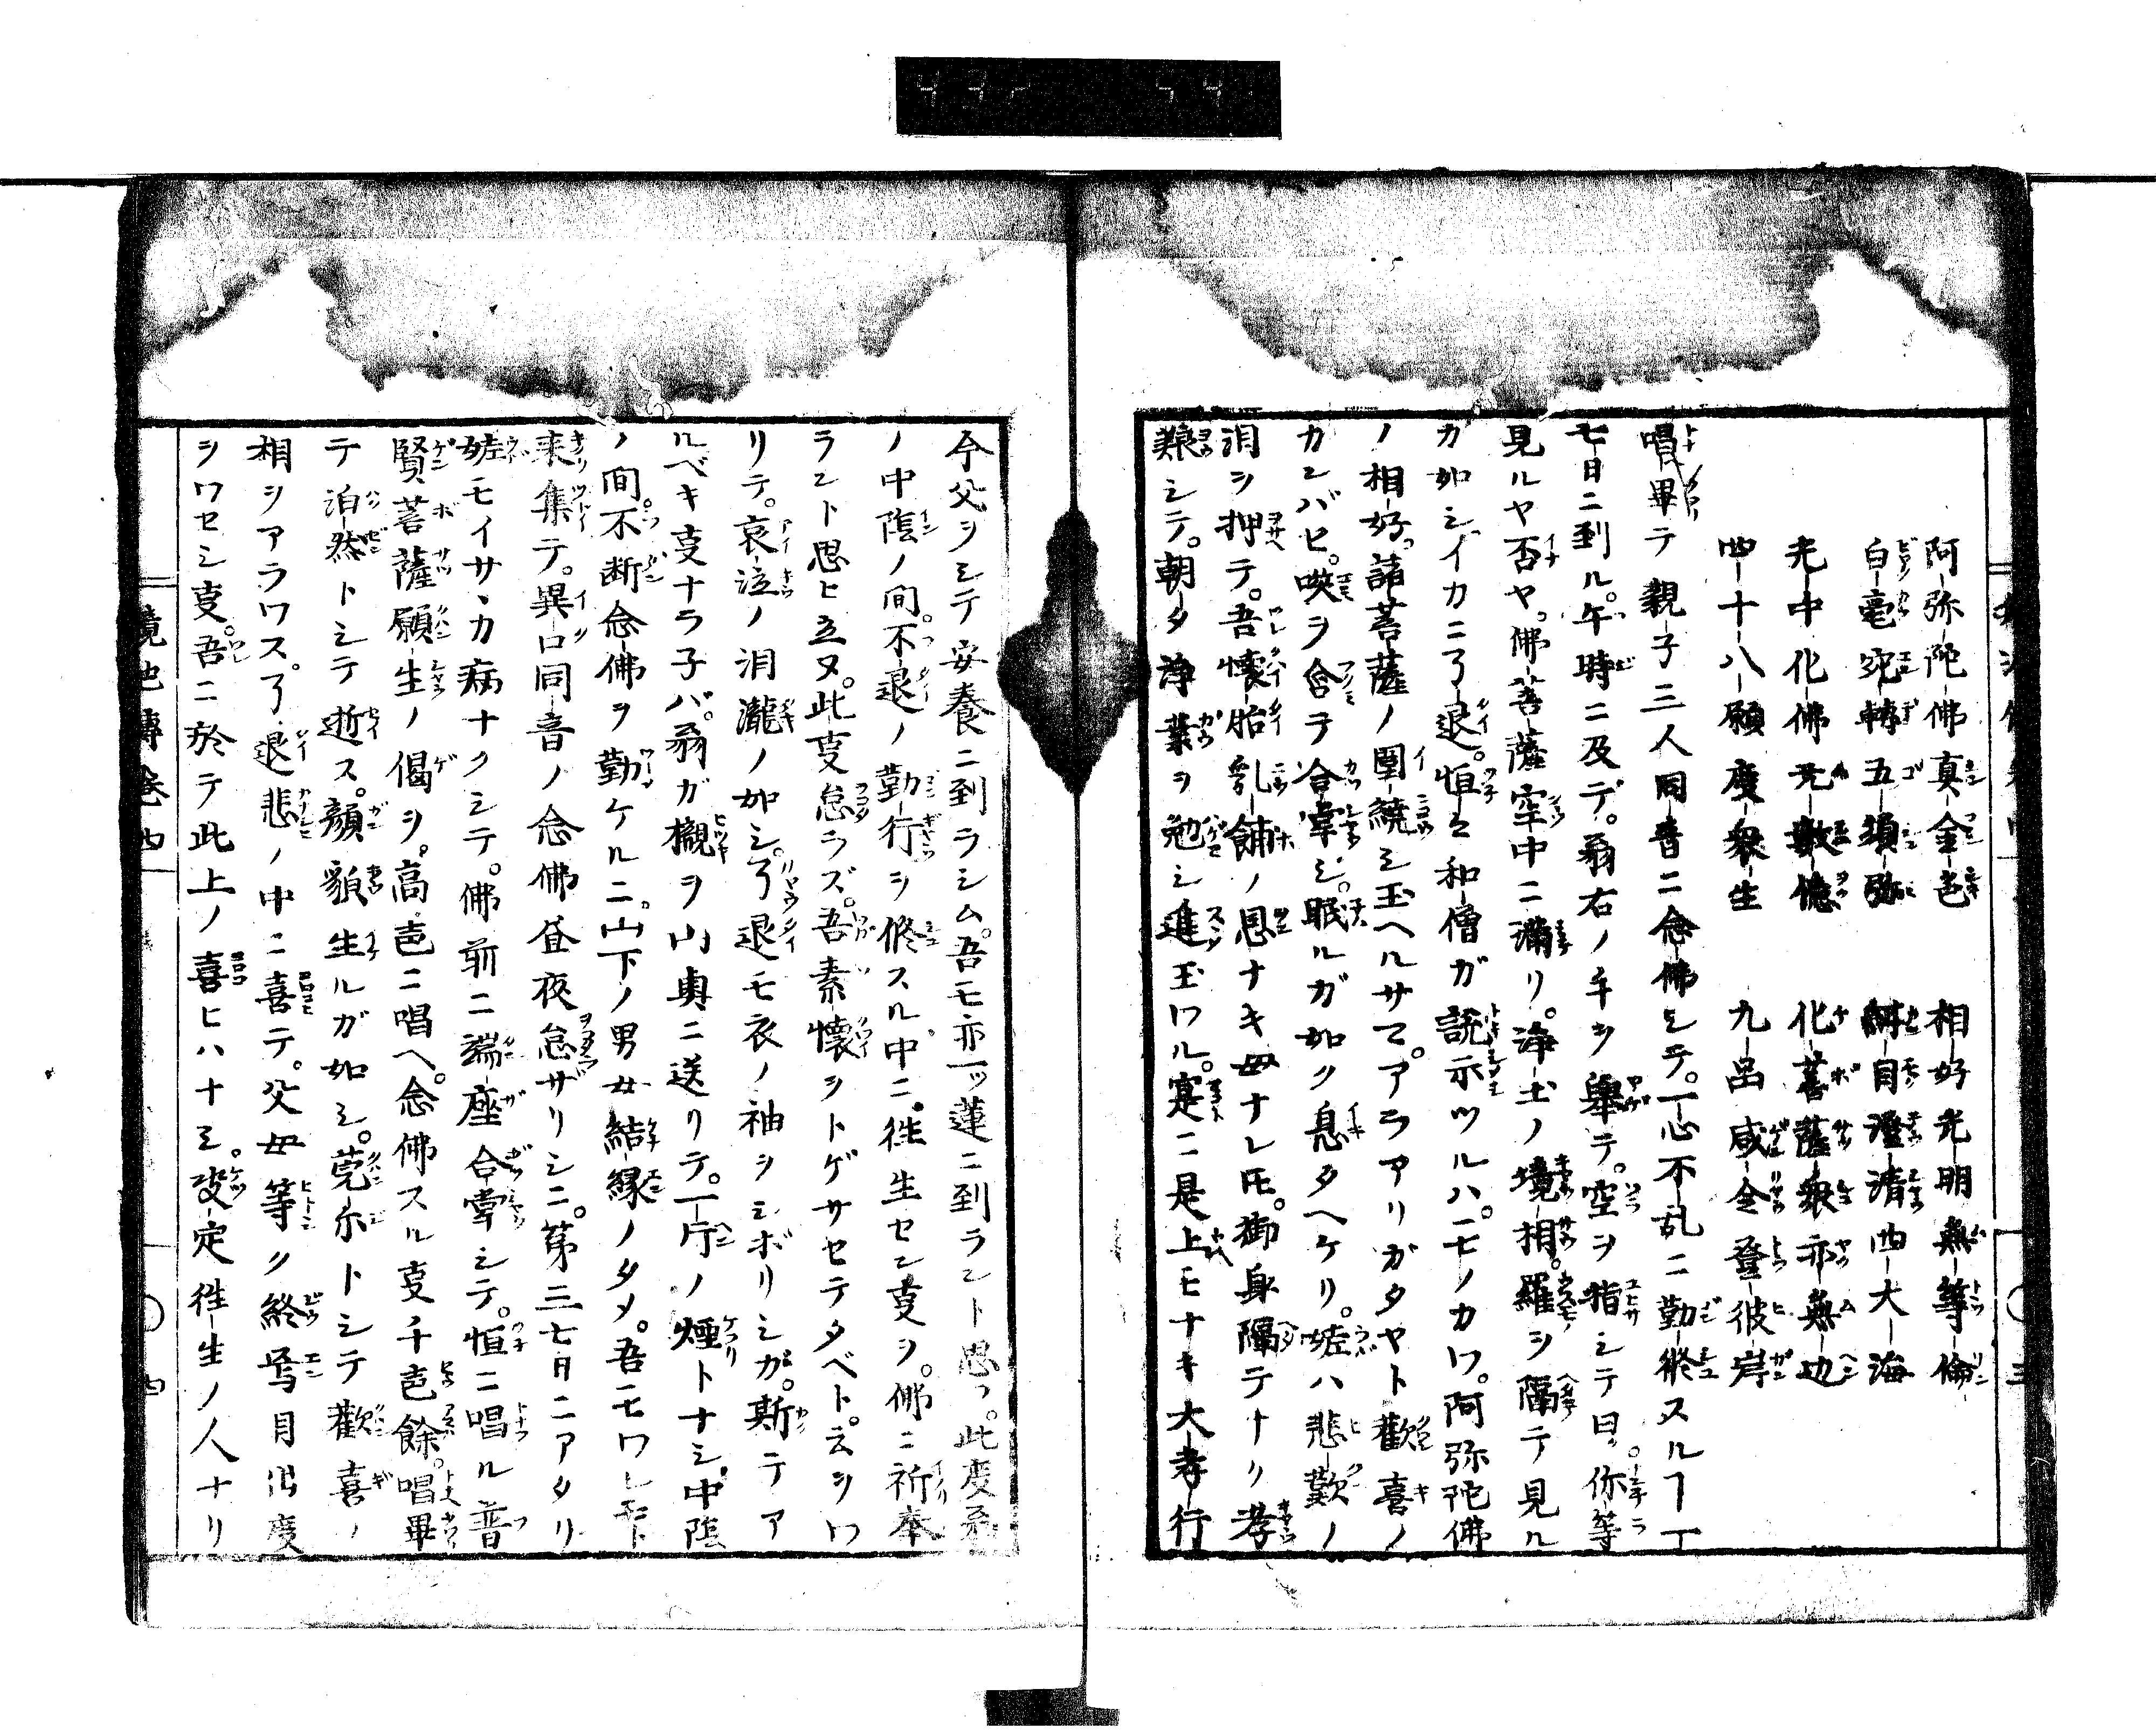 阿弥陀佛真金色　相好光明無等倫
白毫宛轉五須弥　紺目澄清四大海
光中化佛无數億　化菩薩衆亦無邊
四十八願度衆生　九品咸令登彼岸
唱畢テ親子三人同音ニ念佛シテ。一心不乱ニ勤修スルヿ
七日ニ到ル。午時ニ及デ。翁右ノ手ヲ舉テ。空ヲ指シテ曰。你等
見ルヤ否ヤ。佛菩薩空中ニ満リ。浄土ノ境相。羅ヲ隔テ見ル
カ如シ。イカニ了退。恒ニ和僧ガ説示ツルハ。モノカワ。阿弥陀佛
ノ相好。諸菩薩ノ圍繞シ玉ヘルサマ。アラアリガタヤト歡喜ノ
カンバセ。咲ヲ含テ合掌シ。眠ルガ如ク息タヘケリ。姥ハ悲歎ノ
泪ヲ押テ。吾懐胎乳餔ノ恩ナキ母ナレ𪜈。御身隔テナク孝
養シテ。朝夕浄業ヲ勉シ進玉ワル。寔ニ是上モナキ大孝行
今父ヲシテ安養ニ到ラシム。吾モ亦一ッ蓮ニ到ラント思フ。此度翁
ノ中陰ノ間。不退ノ勤行ヲ修スル中ニ。往生セン叓ヲ。佛ニ祈奉
ラント思ヒ立ヌ。此叓怠ラズ。吾素懐ヲトゲサセテタベト。云ヲワ
リテ。哀泣ノ泪瀧ノ如シ。了退モ衣ノ袖ヲシボリシガ。斯テア
ルベキ叓ナラ子バ。翁ガ櫬ヲ山奥ニ送リテ。一片ノ煙トナシ。中陰
ノ間。不断念佛ヲ勤ケルニ。山下ノ男女結縁ノタメ。吾モワレモト
来集テ。異口同音ノ念佛昼夜怠ザリシニ。第三七日ニアタリ
姥モイサヽカ病ナクシテ。佛前ニ端座合掌シテ。恒ニ唱ル普
賢菩薩願生ノ偈ヲ。高声ニ唱ヘ。念佛スル叓千声餘。唱畢
テ泊然トシテ逝ス。顔貌生ルガ如シ。莞尓トシテ歡喜ノ
相ヲアラワス。了退悲ノ中ニ喜テ。父母等ク終焉目出度
ヲワセシ叓。吾ニ於テ此上ノ喜ヒハナシ。决定往生ノ人ナリ
卷四
四